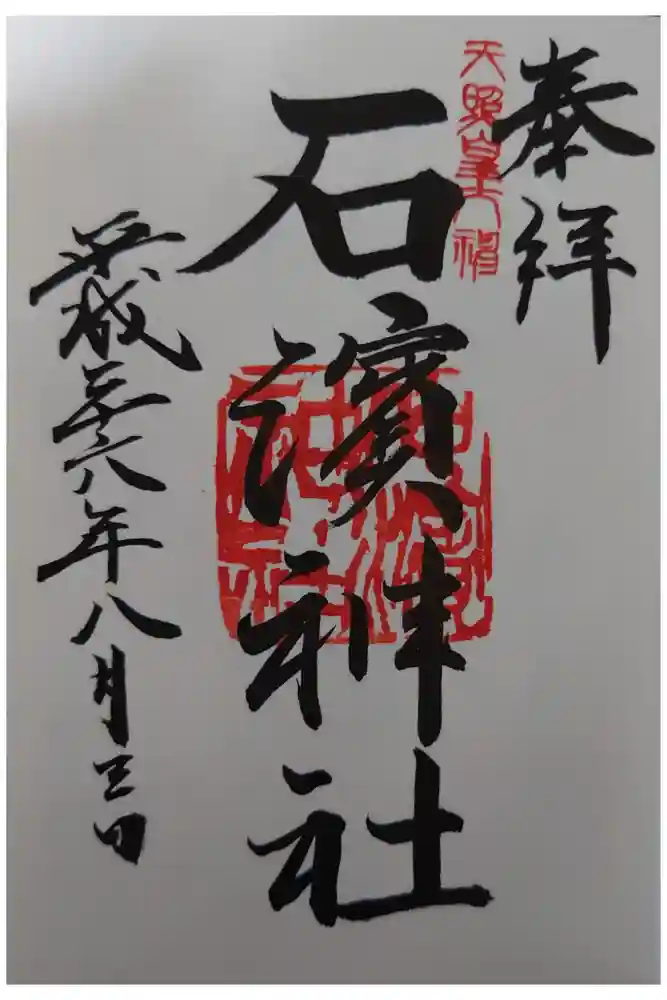 奉拝
天照皇大神
石濱神社
平成二十六年八月三日